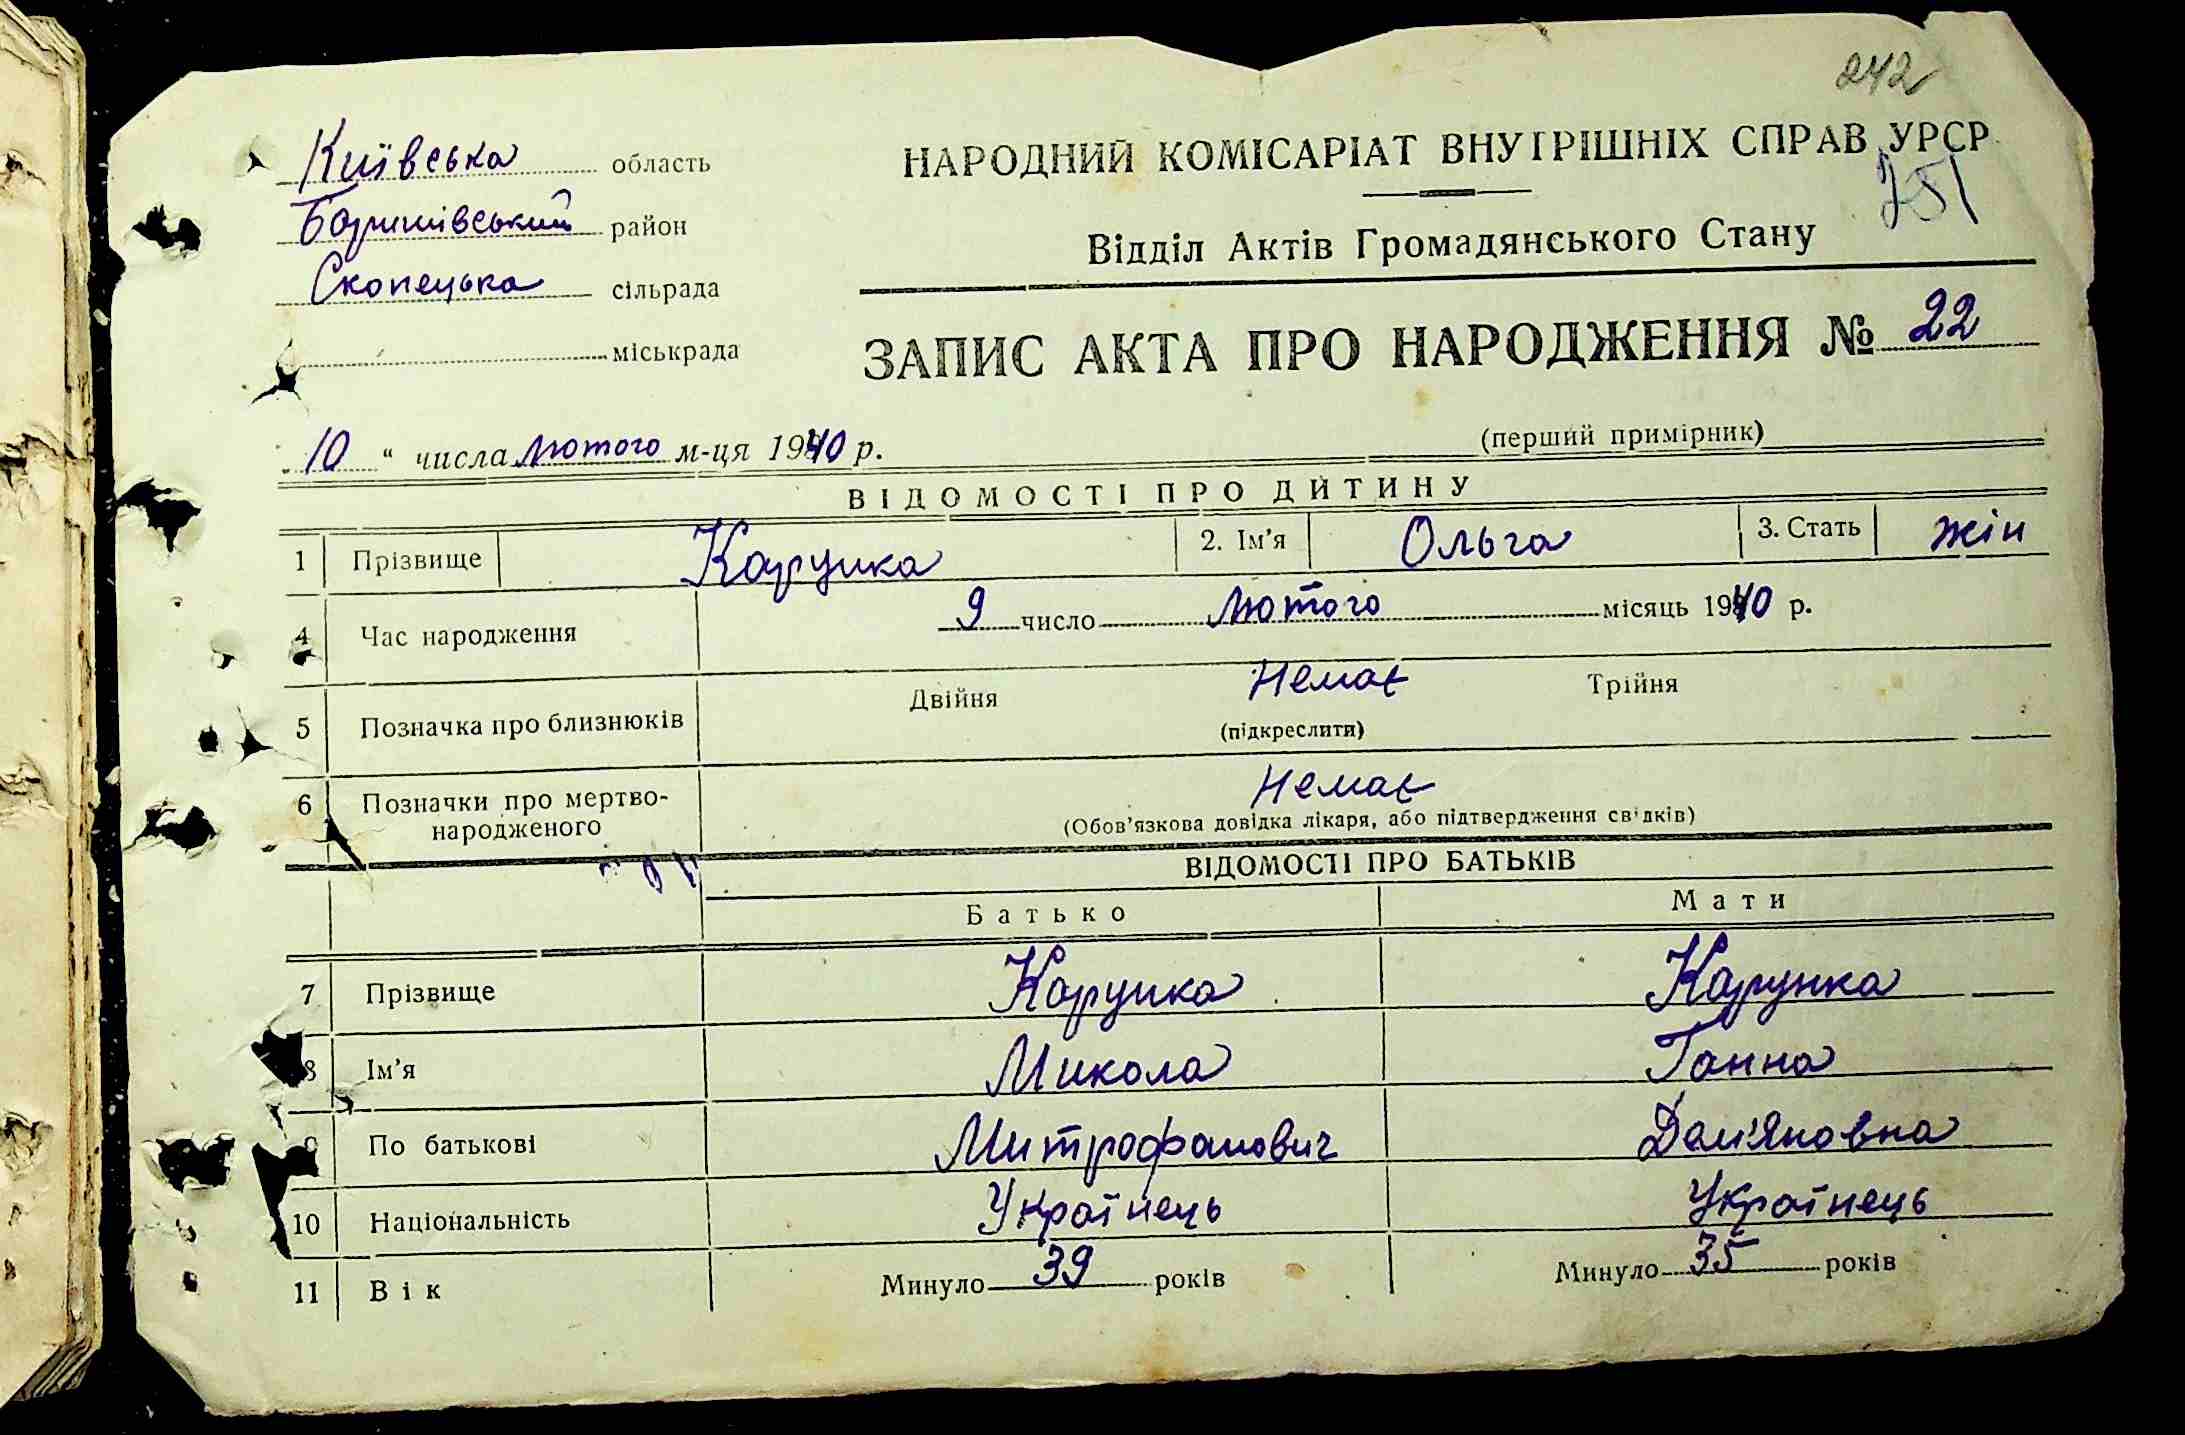 242
Київська область
НАРОДНИЙ КОМІСАРІАТ ВНУТРІШНІХ СПРАВ УРСР
751
Баришівський район
Відділ Актів Громадянського Стану
Скопецька сільрада
міськрада
ЗАПИС АКТА ПРО НАРОДЖЕННЯ № 22
„10“ числа лютого м-ця 1940 р.
(перший примірник)
ВІДОМОСТІ ПРО ДИТИНУ
1 Прізвище Карупка 2. Ім'я Ольга 3. Стать жін
4 Час народження 9 число лютого місяць 1940 р.
5 Позначка про близнюків Двійня Немає Трійня
(підкреслити)
6 Позначки про мертво-
народженого
Немає
(Обов'язкова довідка лікаря, або підтвердження свідків)
ВІДОМОСТІ ПРО БАТЬКІВ
Батько Мати
7 Прізвище Карупка Карунка
8 Ім'я Микола Ганна
9 По батькові Митрофанович Дем'яновна
10 Національність Українець Українець
11 Вік Минуло 39 років Минуло 35 років